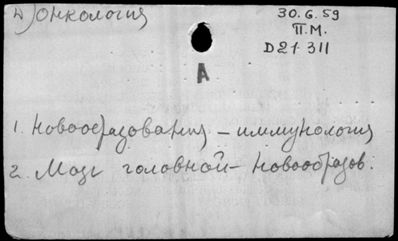 Д) онкология
30.6.59
П.М.
D21-311
А
1. Новообразования – иммунология
2. Мозг головной – Новообразов.